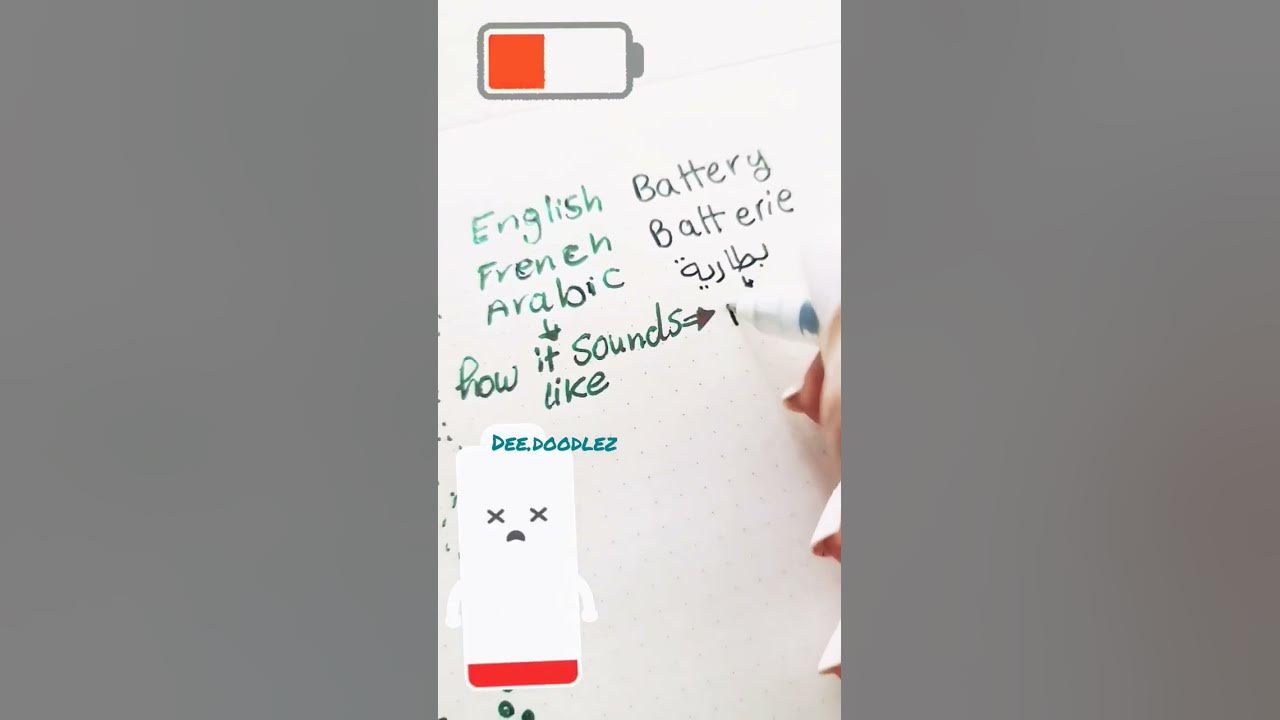 English Battery
French Batterie
Arabic بطارية
how it sounds⇒
like
Dee.doodlez